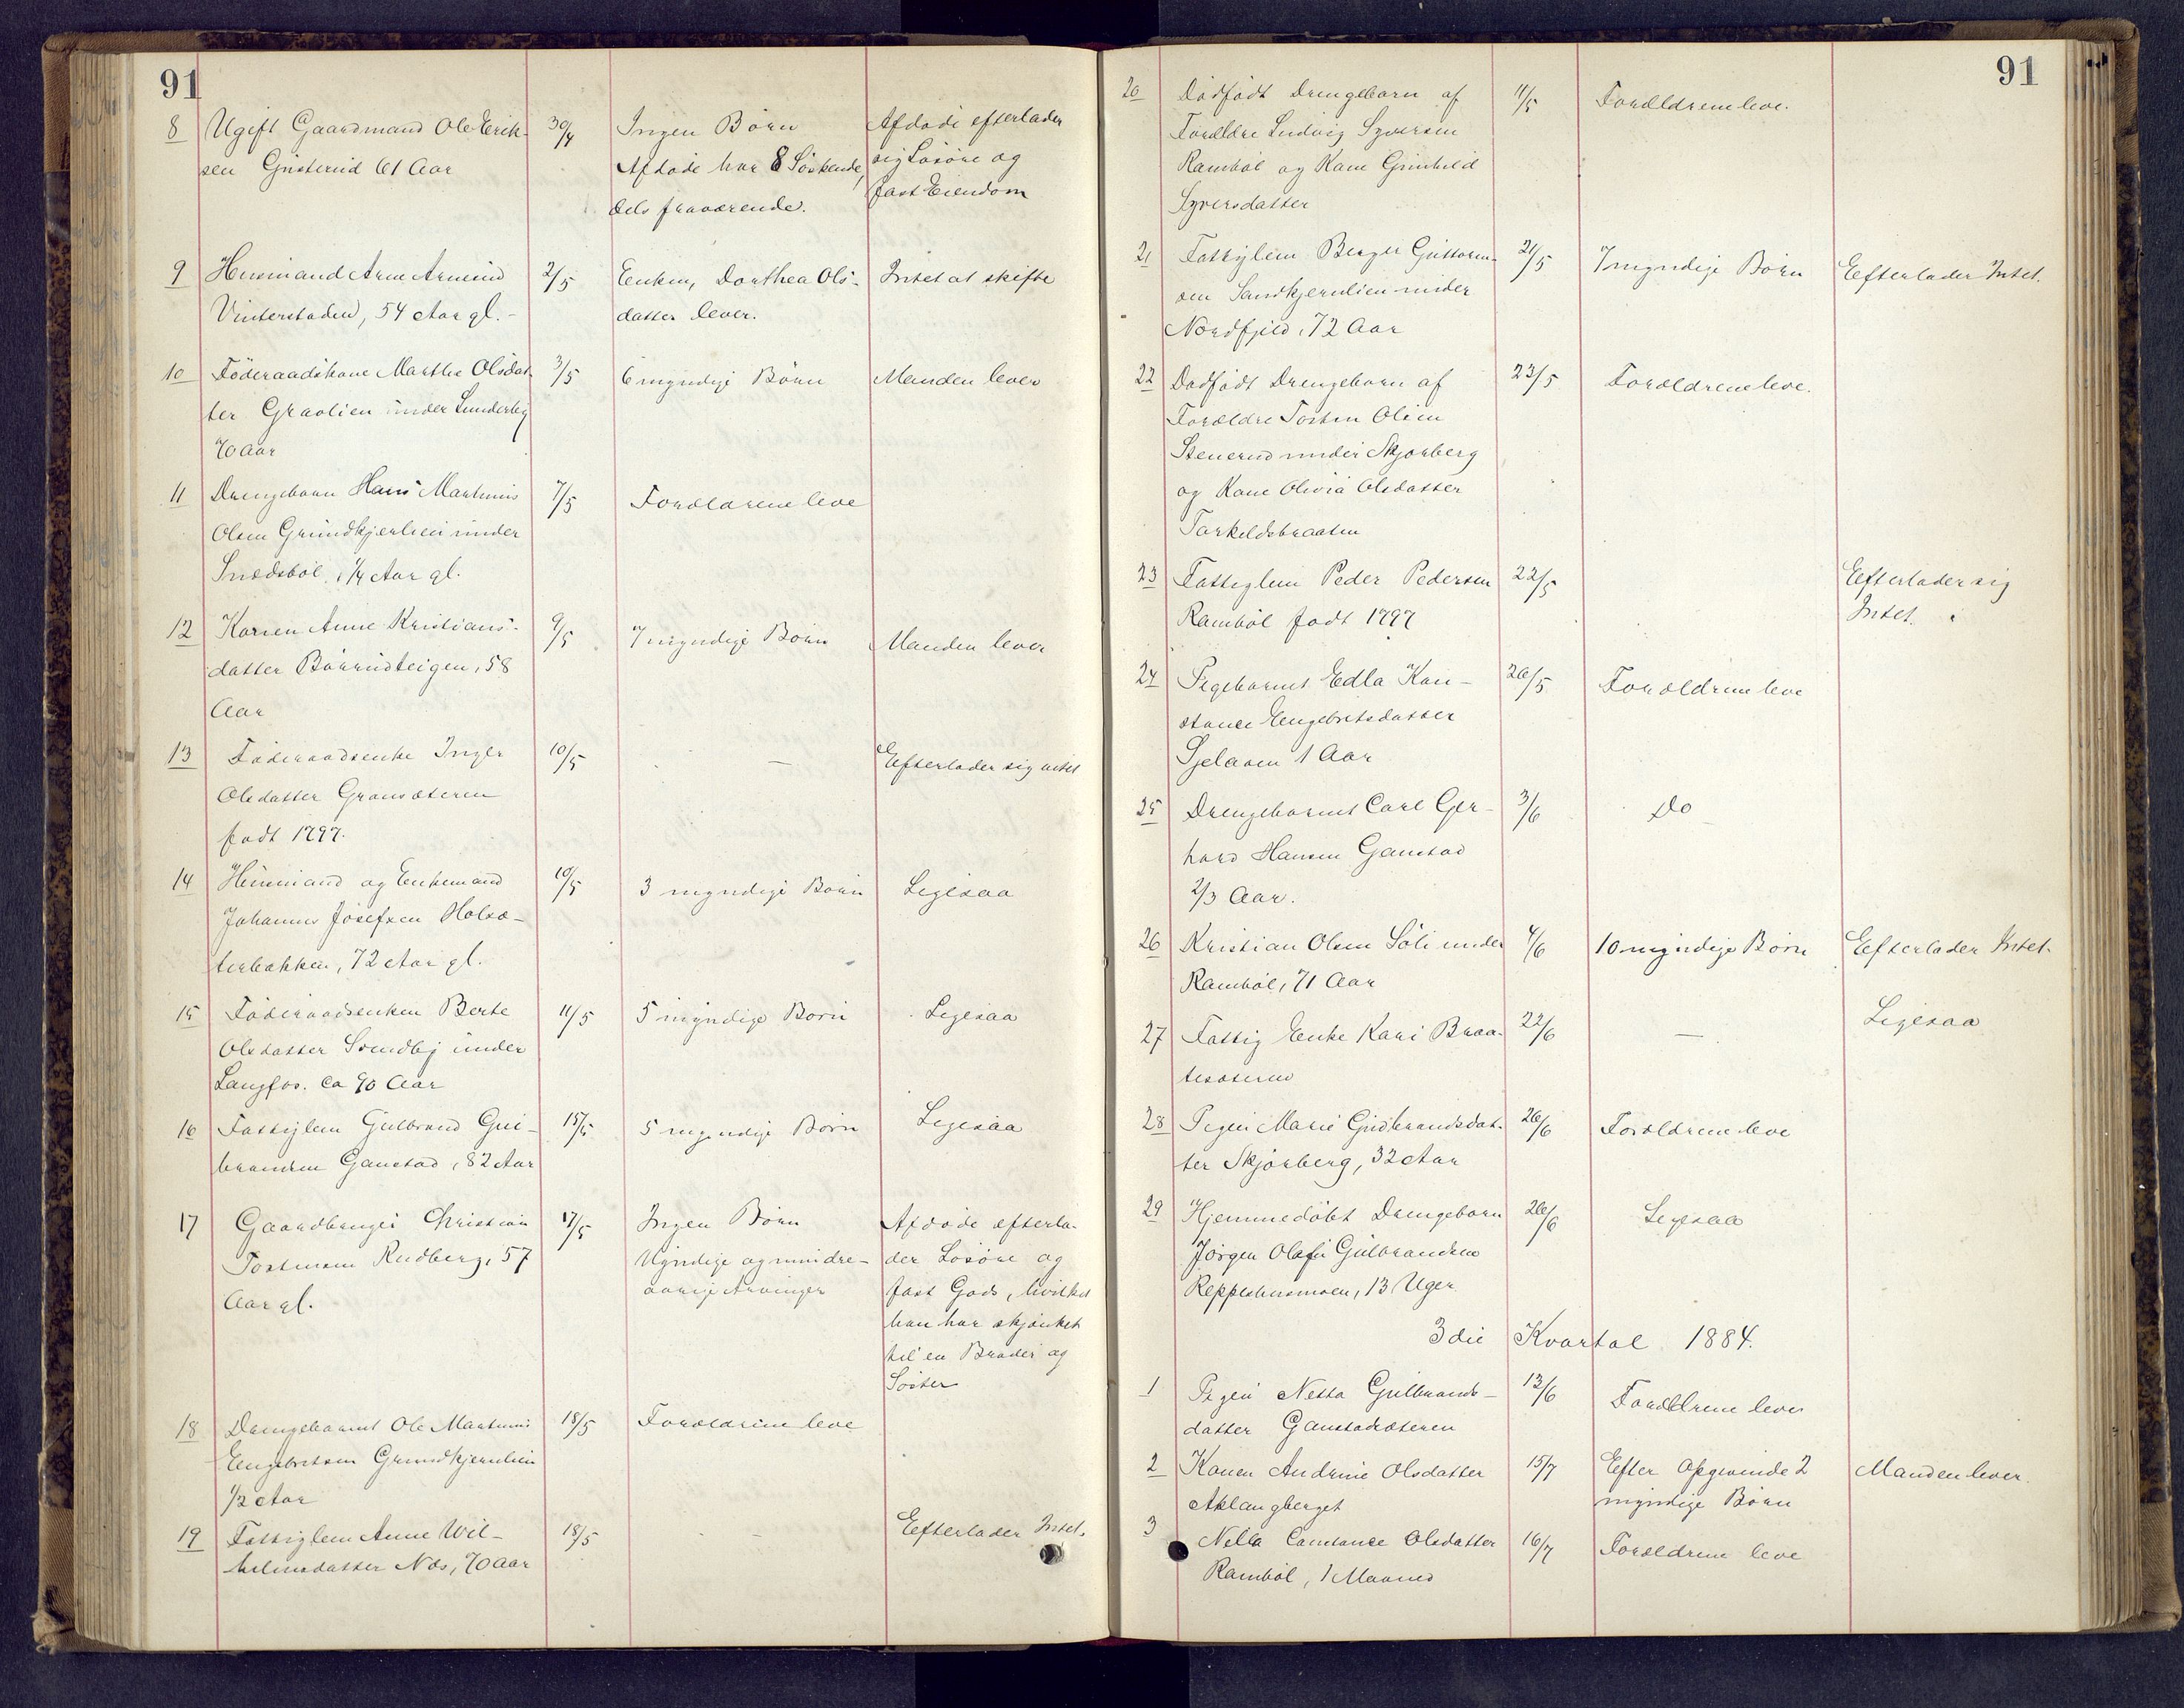 91
8 Ugift Gaardmand Ole Erik- 30/4 Ingen Børn Afdøde efterlader
sen Gusterud 61 Aar Afdøde har 8 Söskende, sig Løsöre og
dels fraværende. fast Eiendom
9 Husmand Arne Arnesen 2/5 Enken, Dorthea Ols- Intet at skifte
Vinterstaden, 54 Aar gl. - datter lever.
10 Föderaadskone Marthe Olsdat- 3/5 6 myndige Börn Manden lever
ter Graolien under Sunderby
70 Aar
11 Drengebarn Hans Martinus 7/5 Forældrene leve
Olsen Grundkjerlien under
Snedsböl, 1/4 Aar gl.
12 Karen Anne Kristians- 9/5 7 myndige Börn Manden lever
datter Börrudteigen, 58
Aar
13 Föderaadsenke Inger 10/5 — Efterlader sig intet
Olsdatter Gransæteren
født 1797.
14 Husmand og Enkemand 10/5 3 myndige Børn Ligesaa
Johannes Josefsen Holsæ-
terbakken, 72 Aar gl.
15 Föderaadsenken Berte 11/5 5 myndige Børn Ligesaa
Olsdatter Sundby under
Langfos. Ca 90 Aar
16 Fattiglem Gulbrand Gul- 15/5 5 myndige Börn Ligesaa
brandsen Gaustad, 82 Aar
17 Gaardbruger Christian 17/5 Ingen Börn Afdøde efterla-
Fostensen Rudberg, 57 Myndige og mindre- der Løsöre og
Aar gl. aarige Arvinger fast Gods, hvilket
han har skjænket
til en Broder og
Söster
18 Drengebarnet Ole Martinus 18/5 Forældrene leve
Engebretsen Grundkjernlien
1/2 Aar
19 Fattiglem Anne Wil- 18/5 - Efterlader Intet.
helmsdatter Næs, 70 Aar
91
20 Dødfødt Drengebarn af 11/5 Forældrene leve.
Forældre Ludvig Syversen
Ramböl og Kone Gunhild
Syversdatter
21 Fattiglem Berger Guttorm- 21/5 7 myndige Børn Efterlader Intet.
sen Sandkjernlien under
Nordfjeld, 72 Aar
22 Dødfødt Drengebarn af 23/5 Forældrene leve.
Forældre Torsten Olsen
Stenerud under Skjørberg
og Kone Olivia Olsdatter
Torkeldsbraaten
23 Fattiglem Peder Pedersen 22/5 Efterlader sig
Ramböl født 1797 Intet.
24 Pigebarnet Edla Kon- 26/5 Forældrene leve
stance Engebretsdatter
Sjelaaen 1 Aar
25 Drengebarnet Carl Ger- 3/6 Do
hard Hansen Gaustad
2/3 Aar.
26 Kristian Olsen Söli under 4/6 10 myndige Börn Efterlader Intet.
Ramböl, 71 Aar
27 Fattig Enke Kari Braa- 22/6 — Ligesaa
tesæteren
28 Pigen Marie Gudbrandsdat- 26/6 Forældrene leve
ter Skjörberg, 32 Aar
29 Hjemmedöbt Drengebarn 26/6 Ligesaa
Jörgen Olefin Gulbrandsen
Reppeshusmoen, 13 Uger
3die Kvartal 1884.
1 Pigen Netta Gulbrands- 12/6 Forældrene lever
datter Gaustadsæteren
2 Konen Andrine Olsdatter 15/7 Efter Opgivende 2 Manden lever.
Aklangberget myndige Börn
3 Nella Constance Olsdatter 16/7 Forældrene leve
Ramböl, 1 Maaned